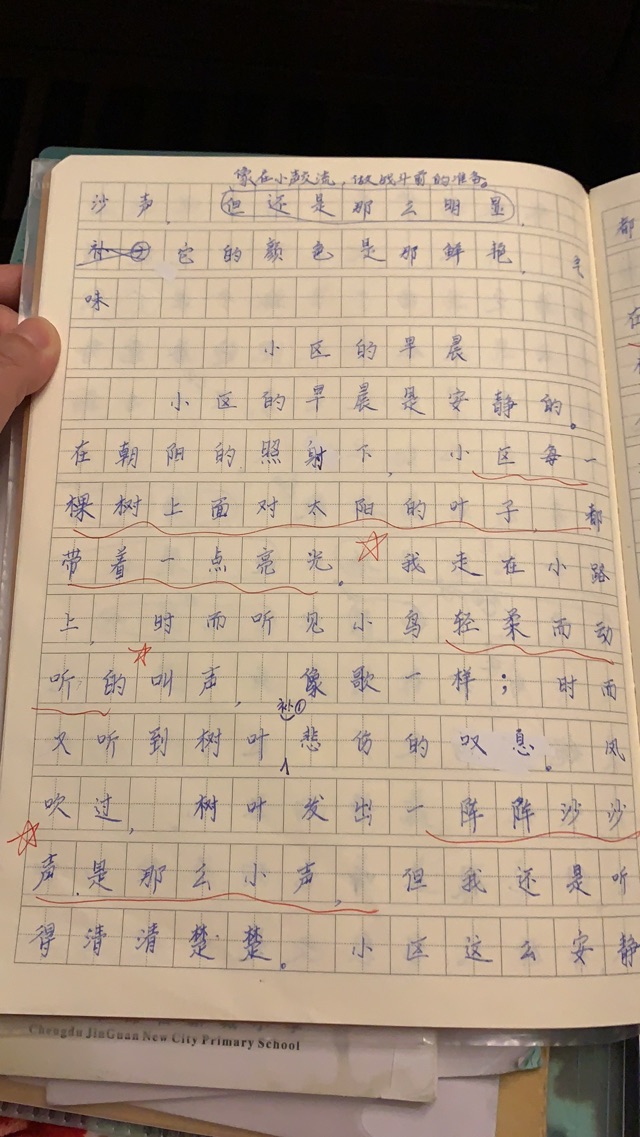 像在小声交流，做战斗前的准备。
沙声，但还是那么明显，
补② 它的颜色是那鲜艳，气
味
小区的早晨
小区的早晨是安静的。
在朝阳的照射下，小区每一
棵树上面对太阳的叶子，都
带着一点亮光。我走在小路
上，时而听见小鸟轻柔而动
听的叫声，像歌一样；时而
补①
又听到树叶悲伤的叹息。风
吹过，树叶发出一阵阵沙沙
声，是那么小声，但我还是听
得清清楚楚。小区这么安静
都
在
Chengdu JinGuan New City Primary School